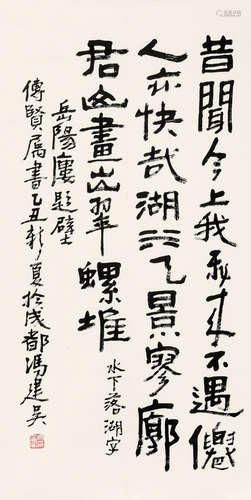 昔聞今上我秋來不遇僊
人亦快哉湖景寥廓
君山畫出翠螺堆
水下落湖字
岳陽樓題壁
傳賢屬書乙丑新夏於成都馮建吳